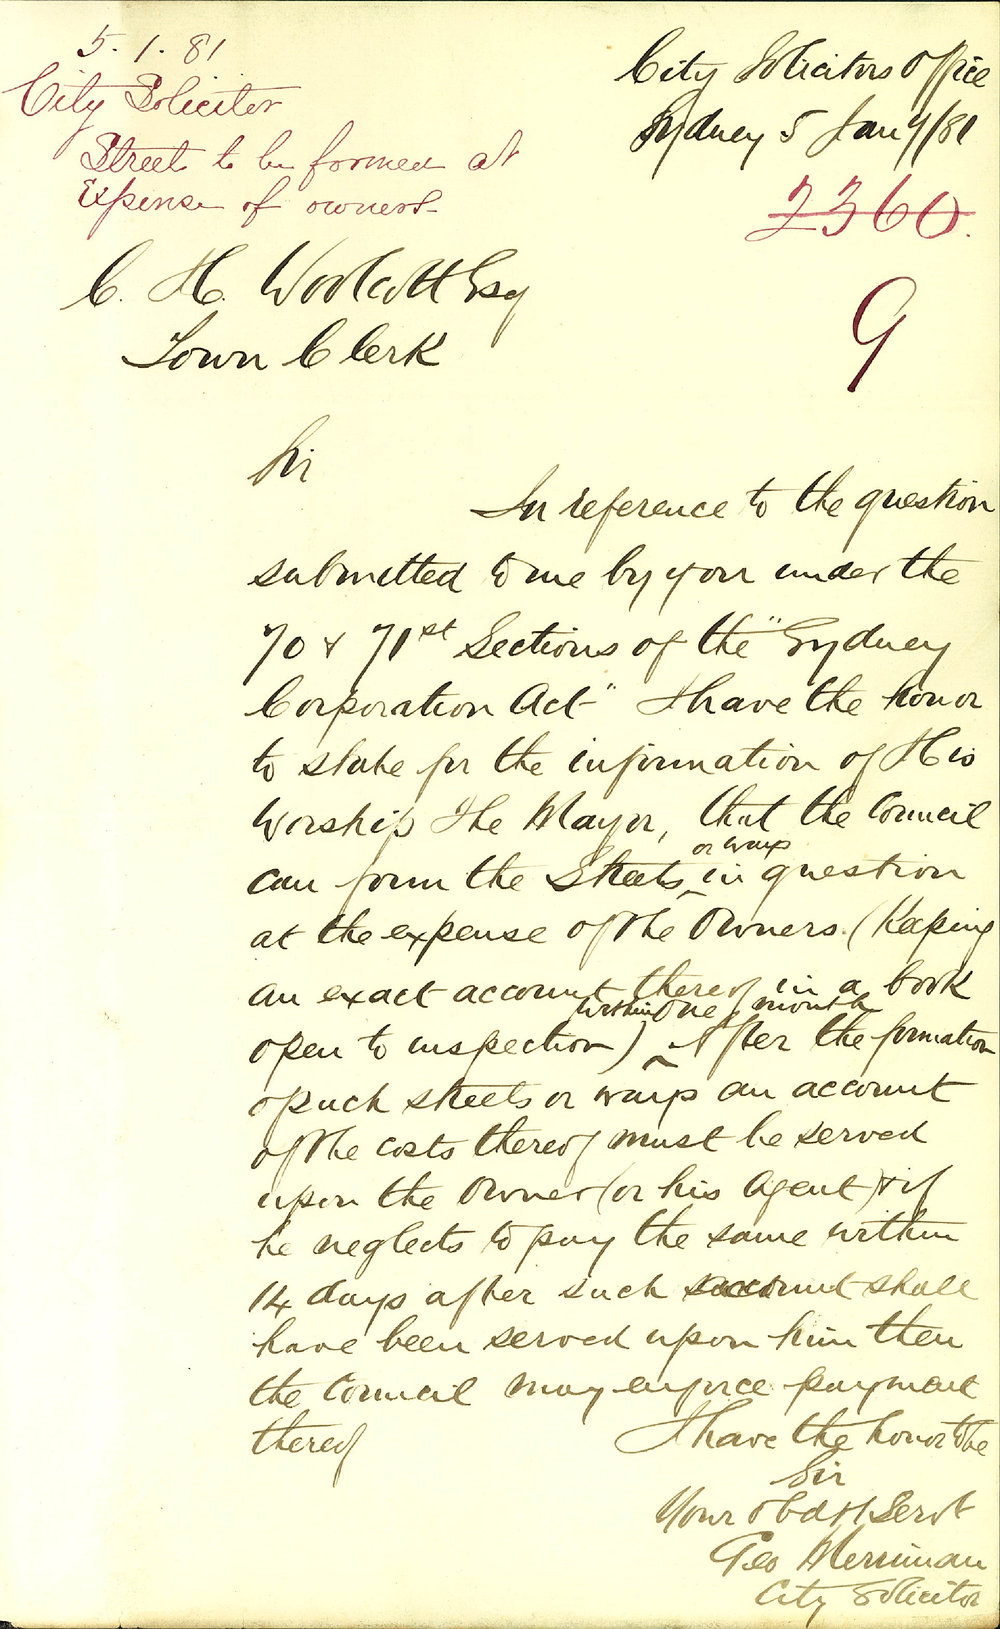 5. 1. 81
City Solicitor
Street to be formed at
Expense of owners-
City Solicitors Office
Sydney 5 Jany/81
2360.
9
C. H. Woolcott Esq
Town Clerk
Sir
In reference to the question
submitted to me by you under the
70 & 71st Sections of the "Sydney
Corporation Act" I have the honor
to state for the information of His
Worship The Mayor, that the Council
can form the Streets or ways in question
at the expense of the Owners. (Keeping
an exact account thereof in a book
open to inspection) within one month After the formation
of such streets or ways an account
of the costs thereof must be served
upon the Owner (or his Agent) & if
he neglects to pay the same within
14 days after such account shall
have been served upon him then
the Council may enforce payment
thereof
I have the honor to be
Sir
Your obdt Servt
Geo Merriman
City Solicitor